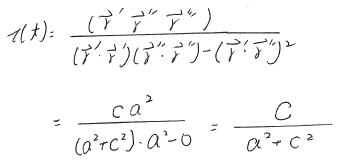 τ(t) = (r⃗′ r⃗″ r⃗‴) / ((r⃗′·r⃗′)(r⃗″·r⃗″)−(r⃗′·r⃗″)²)
= ca² / ((a²+c²)·a²−0) = C / (a²+c²)